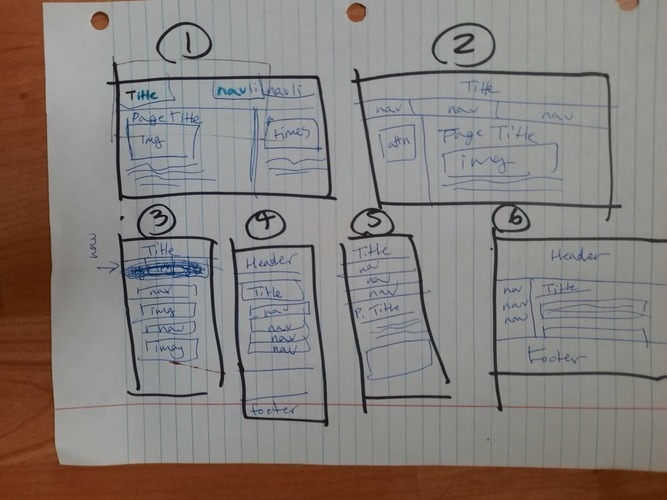 1
Title navli navli
Page Title
Img
times
2
Title
nav nav nav
Page Title
attn
img
3
nav
Title
nav
img
nav
img
4
Header
Title
nav
nav
nav
nav
footer
5
Title
nav
nav
nav
P. Title
6
Header
nav Title
nav
nav
Footer